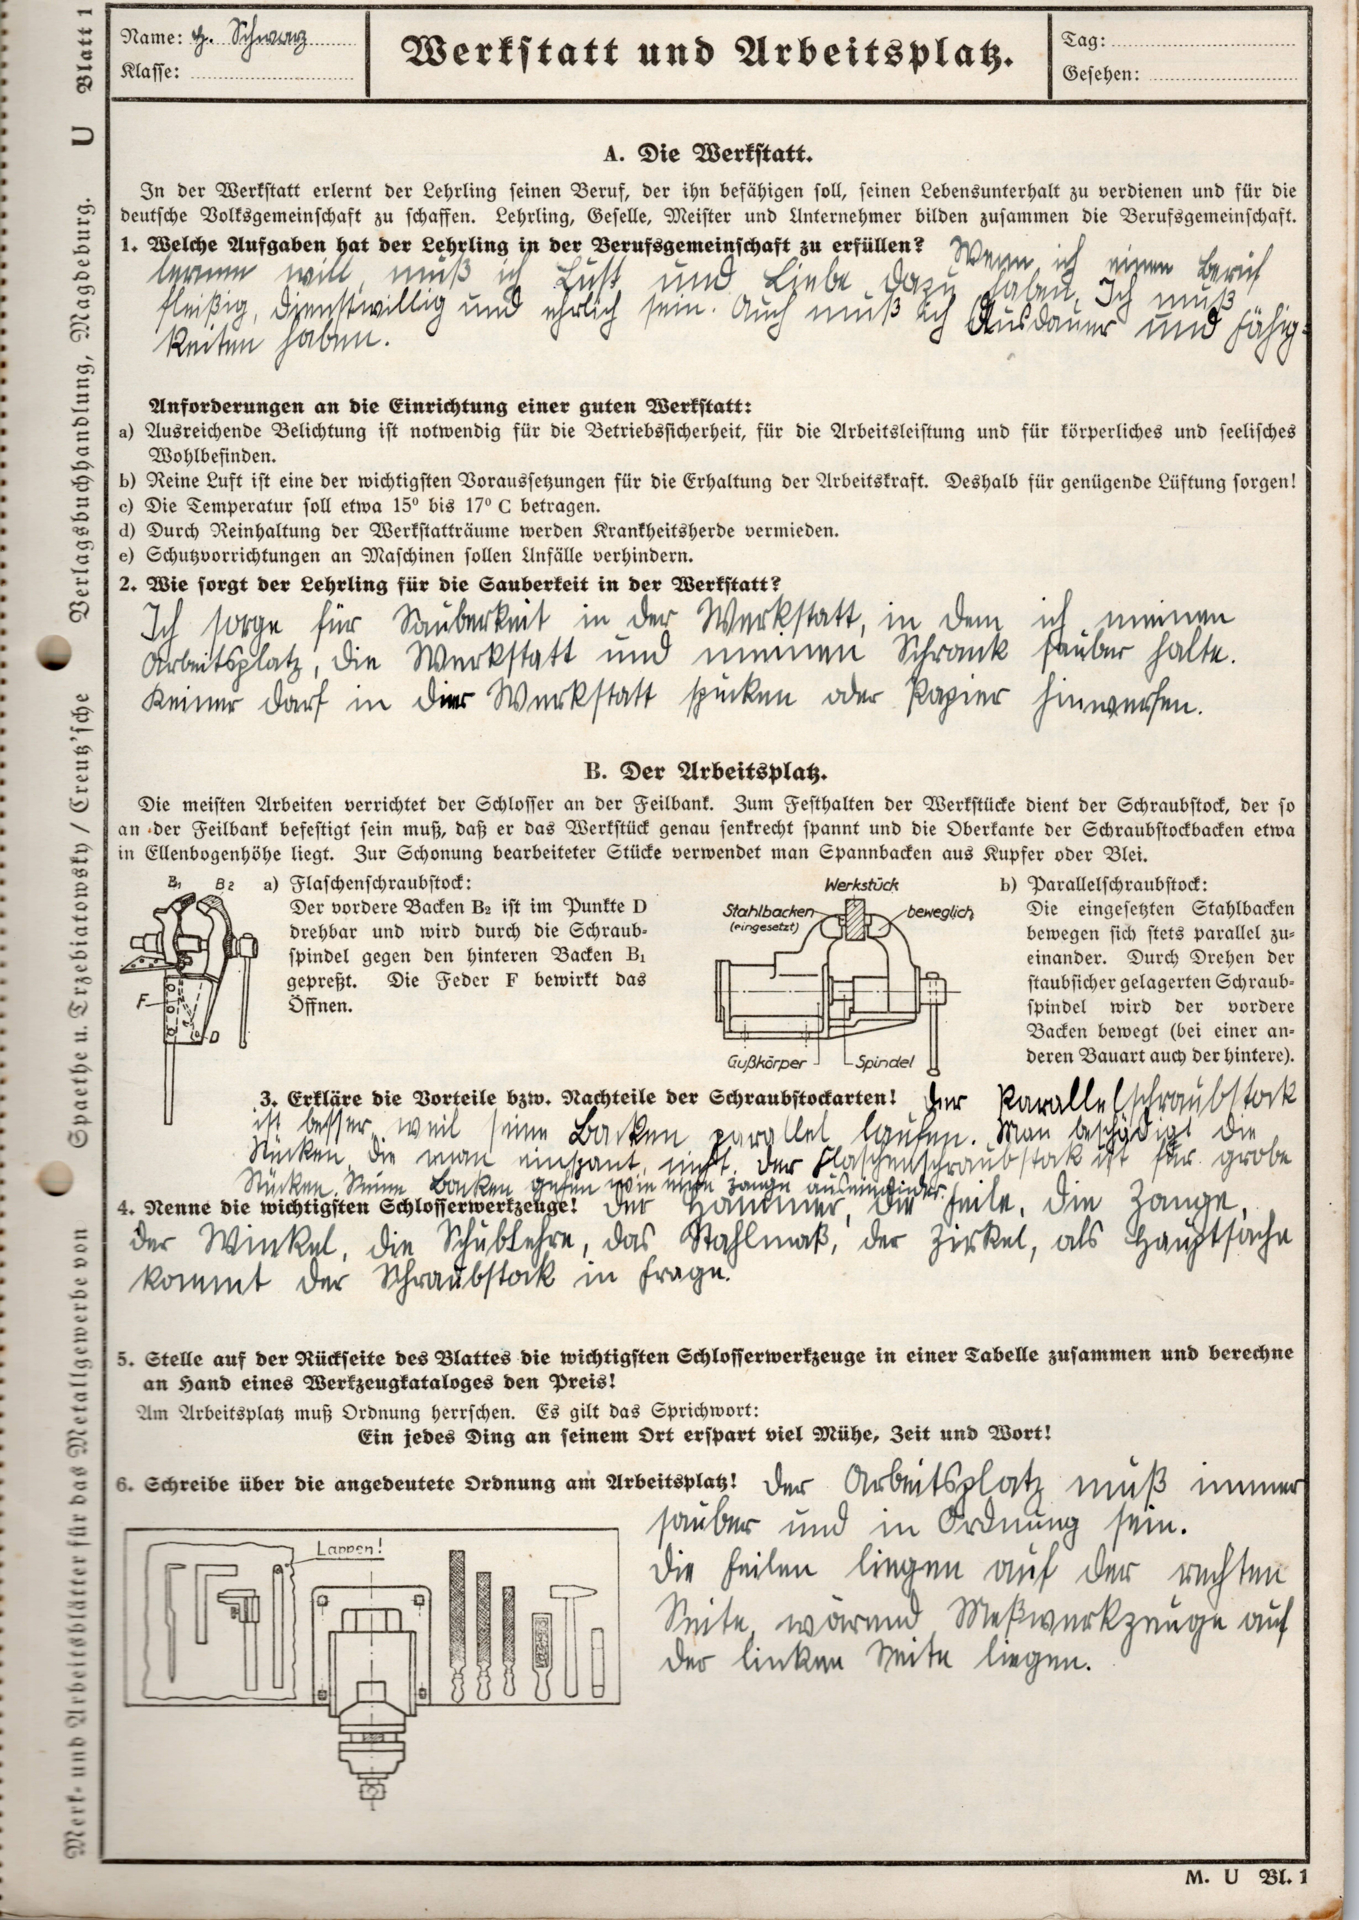 Name: H. Schwarz
Klasse:
Werkstatt und Arbeitsplatz.
Tag:
Gesehen:
Merk- und Arbeitsblätter für das Metallgewerbe von Spaethe u. Trzebiatowsky / Creutz'sche Verlagsbuchhandlung, Magdeburg. U Blatt 1
A. Die Werkstatt.
In der Werkstatt erlernt der Lehrling seinen Beruf, der ihn befähigen soll, seinen Lebensunterhalt zu verdienen und für die
deutsche Volksgemeinschaft zu schaffen. Lehrling, Geselle, Meister und Unternehmer bilden zusammen die Berufsgemeinschaft.
1. Welche Aufgaben hat der Lehrling in der Berufsgemeinschaft zu erfüllen? Wenn ich einen Beruf
lernen will, muß ich Lust und Liebe dazu haben. Ich muß
fleißig, dienstwillig und ehrlich sein. Auch muß ich Ausdauer und Fähig-
keiten haben.
Anforderungen an die Einrichtung einer guten Werkstatt:
a) Ausreichende Belichtung ist notwendig für die Betriebssicherheit, für die Arbeitsleistung und für körperliches und seelisches
Wohlbefinden.
b) Reine Luft ist eine der wichtigsten Voraussetzungen für die Erhaltung der Arbeitskraft. Deshalb für genügende Lüftung sorgen!
c) Die Temperatur soll etwa 15° bis 17° C betragen.
d) Durch Reinhaltung der Werkstatträume werden Krankheitsherde vermieden.
e) Schutzvorrichtungen an Maschinen sollen Unfälle verhindern.
2. Wie sorgt der Lehrling für die Sauberkeit in der Werkstatt?
Ich sorge für Sauberkeit in der Werkstatt, in dem ich meinen
Arbeitsplatz, die Werkstatt und meinen Schrank sauber halte.
Keiner darf in der Werkstatt spucken oder Papier hinwerfen.
B. Der Arbeitsplatz.
Die meisten Arbeiten verrichtet der Schlosser an der Feilbank. Zum Festhalten der Werkstücke dient der Schraubstock, der so
an der Feilbank befestigt sein muß, daß er das Werkstück genau senkrecht spannt und die Oberkante der Schraubstockbacken etwa
in Ellenbogenhöhe liegt. Zur Schonung bearbeiteter Stücke verwendet man Spannbacken aus Kupfer oder Blei.
B1 B2
F
D
a) Flaschenschraubstock:
Der vordere Backen B2 ist im Punkte D
drehbar und wird durch die Schraub-
spindel gegen den hinteren Backen B1
gepreßt. Die Feder F bewirkt das
Öffnen.
Werkstück
Stahlbacken
(eingesetzt)
beweglich
Gußkörper
Spindel
b) Parallelschraubstock:
Die eingesetzten Stahlbacken
bewegen sich stets parallel zu-
einander. Durch Drehen der
staubsicher gelagerten Schraub-
spindel wird der vordere
Backen bewegt (bei einer an-
deren Bauart auch der hintere).
3. Erkläre die Vorteile bzw. Nachteile der Schraubstockarten! Der Parallelschraubstock
ist besser, weil seine Backen parallel laufen. Man beschädigt die
Stücken, die man einspant, nicht. Der Flaschenschraubstok ist für grobe
Stücken. Seine Backen gehen wie eine Zange auseinander.
4. Nenne die wichtigsten Schlosserwerkzeuge! Der Hammer, die Feile, die Zange,
der Winkel, die Schublehre, das Stahlmaß, der Zirkel, als Hauptsache
kommt der Schraubstock in Frage.
5. Stelle auf der Rückseite des Blattes die wichtigsten Schlosserwerkzeuge in einer Tabelle zusammen und berechne
an Hand eines Werkzeugkataloges den Preis!
Am Arbeitsplatz muß Ordnung herrschen. Es gilt das Sprichwort:
Ein jedes Ding an seinem Ort erspart viel Mühe, Zeit und Wort!
6. Schreibe über die angedeutete Ordnung am Arbeitsplatz! Der Arbeitsplatz muß immer
sauber und in Ordnung sein.
Die Feilen liegen auf der rechten
Seite, wärend Meßwerkzeuge auf
der linken Seite liegen.
Lappen!
M. U Bl. 1